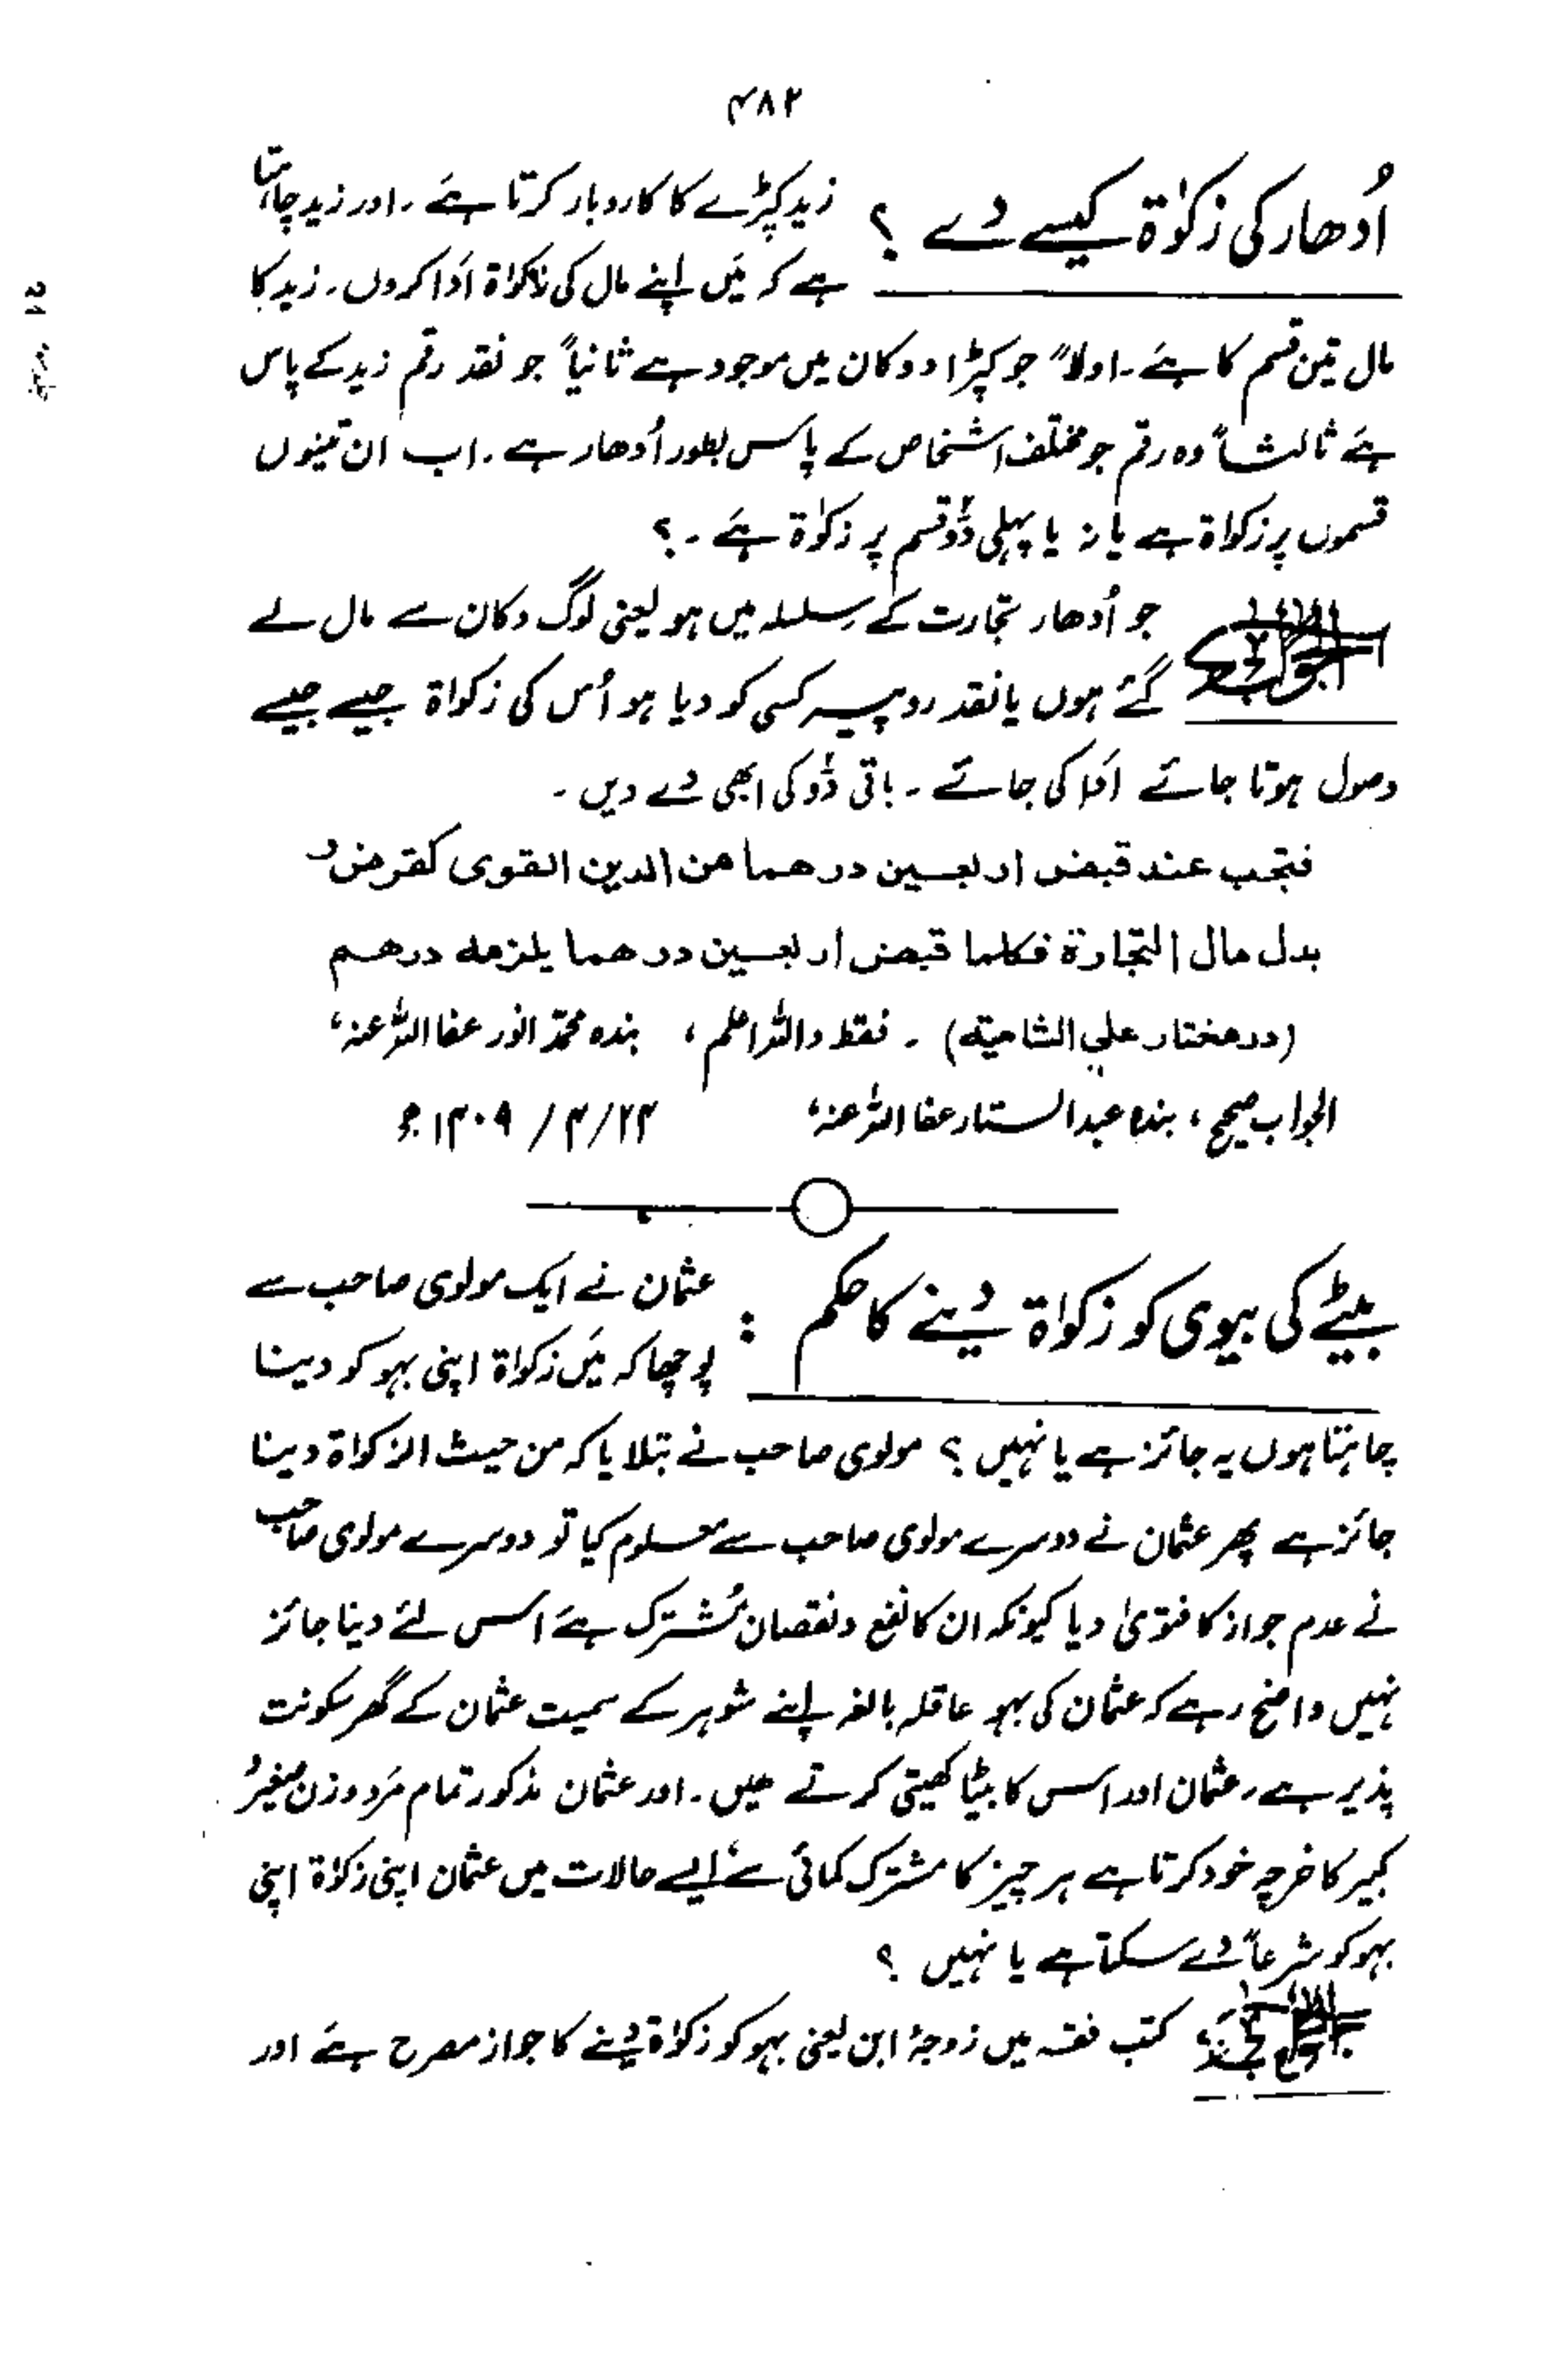 ۴۸۲
اُدھار کی زکوٰۃ کیسے دے ؟
زید کپڑے کا کاروبار کرتا ہے ۔ اور زید چاہتا
ہے کہ میَں اپنے مال کی زکوٰۃ اَدا کروں ۔ زید کا
مال تین قسم کا ہے ۔ اولاً جو کپڑا دوکان میں موجود ہے ثانیاً جو نقد رقم زید کے پاس
ہے ثالثاً وہ رقم جو مختلف اشخاص کے پاس بطور اُدھار ہے ۔ اب ان تینوں
قسموں پر زکواۃ ہے یا نہ یا پہلی دَو قسم پر زکوٰۃ ہے ۔ ؟
الجواب
جو اُدھار تجارت کے سلسلہ میں ہو یعنی لوگ دکان سے مال لے
گئے ہوں یا نقد روپیہ کسی کو دیا ہو اُس کی زکواۃ جیسے جیسے
وصول ہوتا جائے اَدا کی جائے ۔ باقی دَو کی ابھی دے دیں ۔
فتجب عند قبض اربعین درهما من الدین القوی کقرض و
بدل مال التجارة فکلما قبض اربعین درهما یلزمه درهم
(درمختار علی الشامیة) ۔ فقط واللہ اعلم ، بندہ محمد انور عفا اللہ عنہ ،
الجواب صحیح ، بندہ عبدالستار عفا اللہ عنہ ، ۲۴/۴/ ۱۴۰۹ھ
بیٹے کی بیوی کو زکوٰۃ دینے کا حکم :
عثمان نے ایک مولوی صاحب سے
پوچھا کہ میَں زکوٰۃ اپنی بہو کو دینا
چاہتا ہوں یہ جائز ہے یا نہیں ؟ مولوی صاحب نے بتلایا کہ من حیث الزکواۃ دینا
جائز ہے پھر عثمان نے دوسرے مولوی صاحب سے معلوم کیا تو دوسرے مولوی صاحب
نے عدم جواز کا فتویٰ دیا کیونکہ ان کا نفع و نقصان مُشترک ہے اس لئے دینا جائز
نہیں واضح رہے کہ عثمان کی بہو عاقلہ بالغہ اپنے شوہر کے سمیت عثمان کے گھر سکونت
پذیر ہے ۔ عثمان اور اس کا بیٹا کھیتی کرتے ہیں ۔ اور عثمان مذکور تمام مَرد و زن صغیر و
کبیر کا خرچہ خود کرتا ہے ہر چیز کا مشترک کمائی سے ایسے حالات میں عثمان اپنی زکوٰۃ اپنی
بہو کو شرعاً دے سکتا ہے یا نہیں ؟
الجواب
کتب فقہ میں زوجۂ ابن یعنی بہو کو زکوٰۃ دینے کا جواز مصرح ہے اور